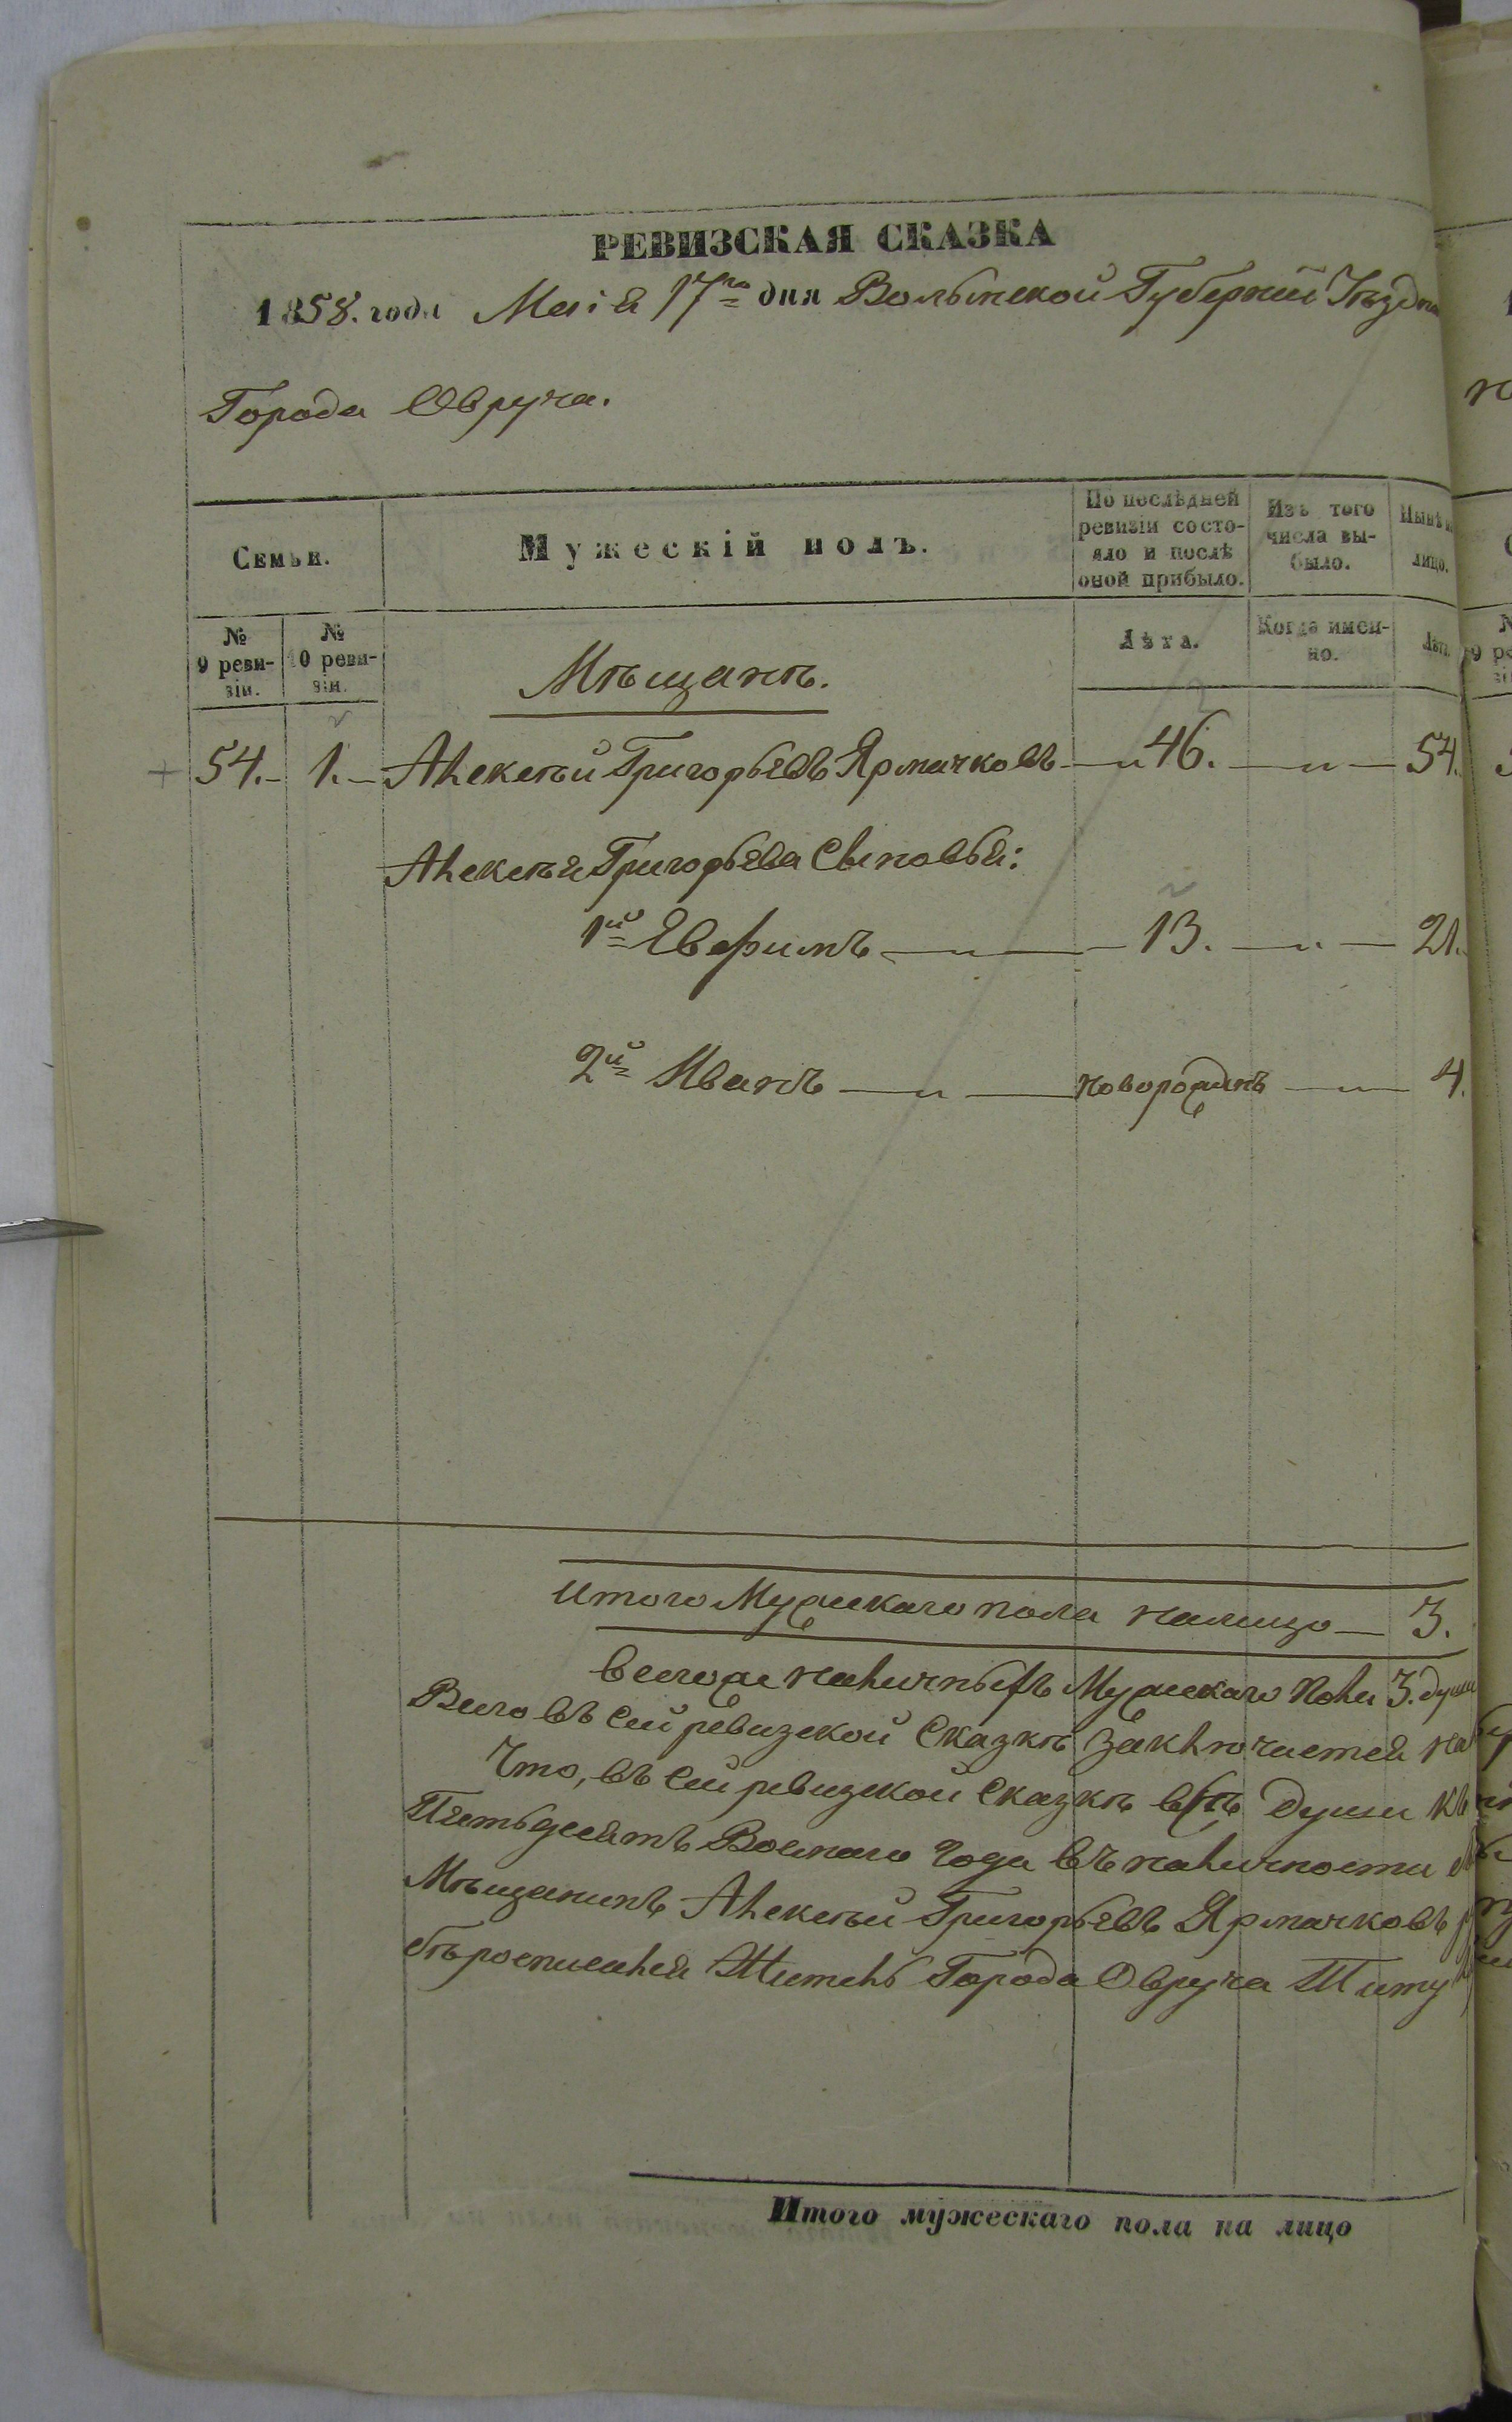 РЕВИЗСКАЯ СКАЗКА
1858. года Маія 17го дня Волынской Губерніи Уѣзднаго
Города Овруча.
Семьи.
Мужескій полъ.
По послѣдней ревизіи состояло и послѣ оной прибыло.
Изъ того числа выбыло.
Нынѣ на лицо.
№ 9 ревизіи.
№ 10 ревизіи.
Лѣта.
Когда именно.
Лѣта.
Мѣщанъ.
54. 1. Алексѣй Григорьевъ Ярмачковъ — " 46. — " — 54.
Алексѣя Григорьева Сыновья:
1й Евфимъ — " — 13. — " — 21.
2й Иванъ — " — новорожднъ — " — 4.
Итого Мужскаго пола налицо — 3.
Всегоже наличныхъ Мужескаго пола 3. души
Всего въ сей ревизской Сказкѣ Заключается на
Что, въ сей ревизской Сказкѣ всѣ души къ
Пятьдесятъ Восмаго Года въ наличности
Мѣщанинъ Алексѣй Григорьевъ Ярмачковъ
Житель Города Овруча
Итого мужескаго пола на лицо